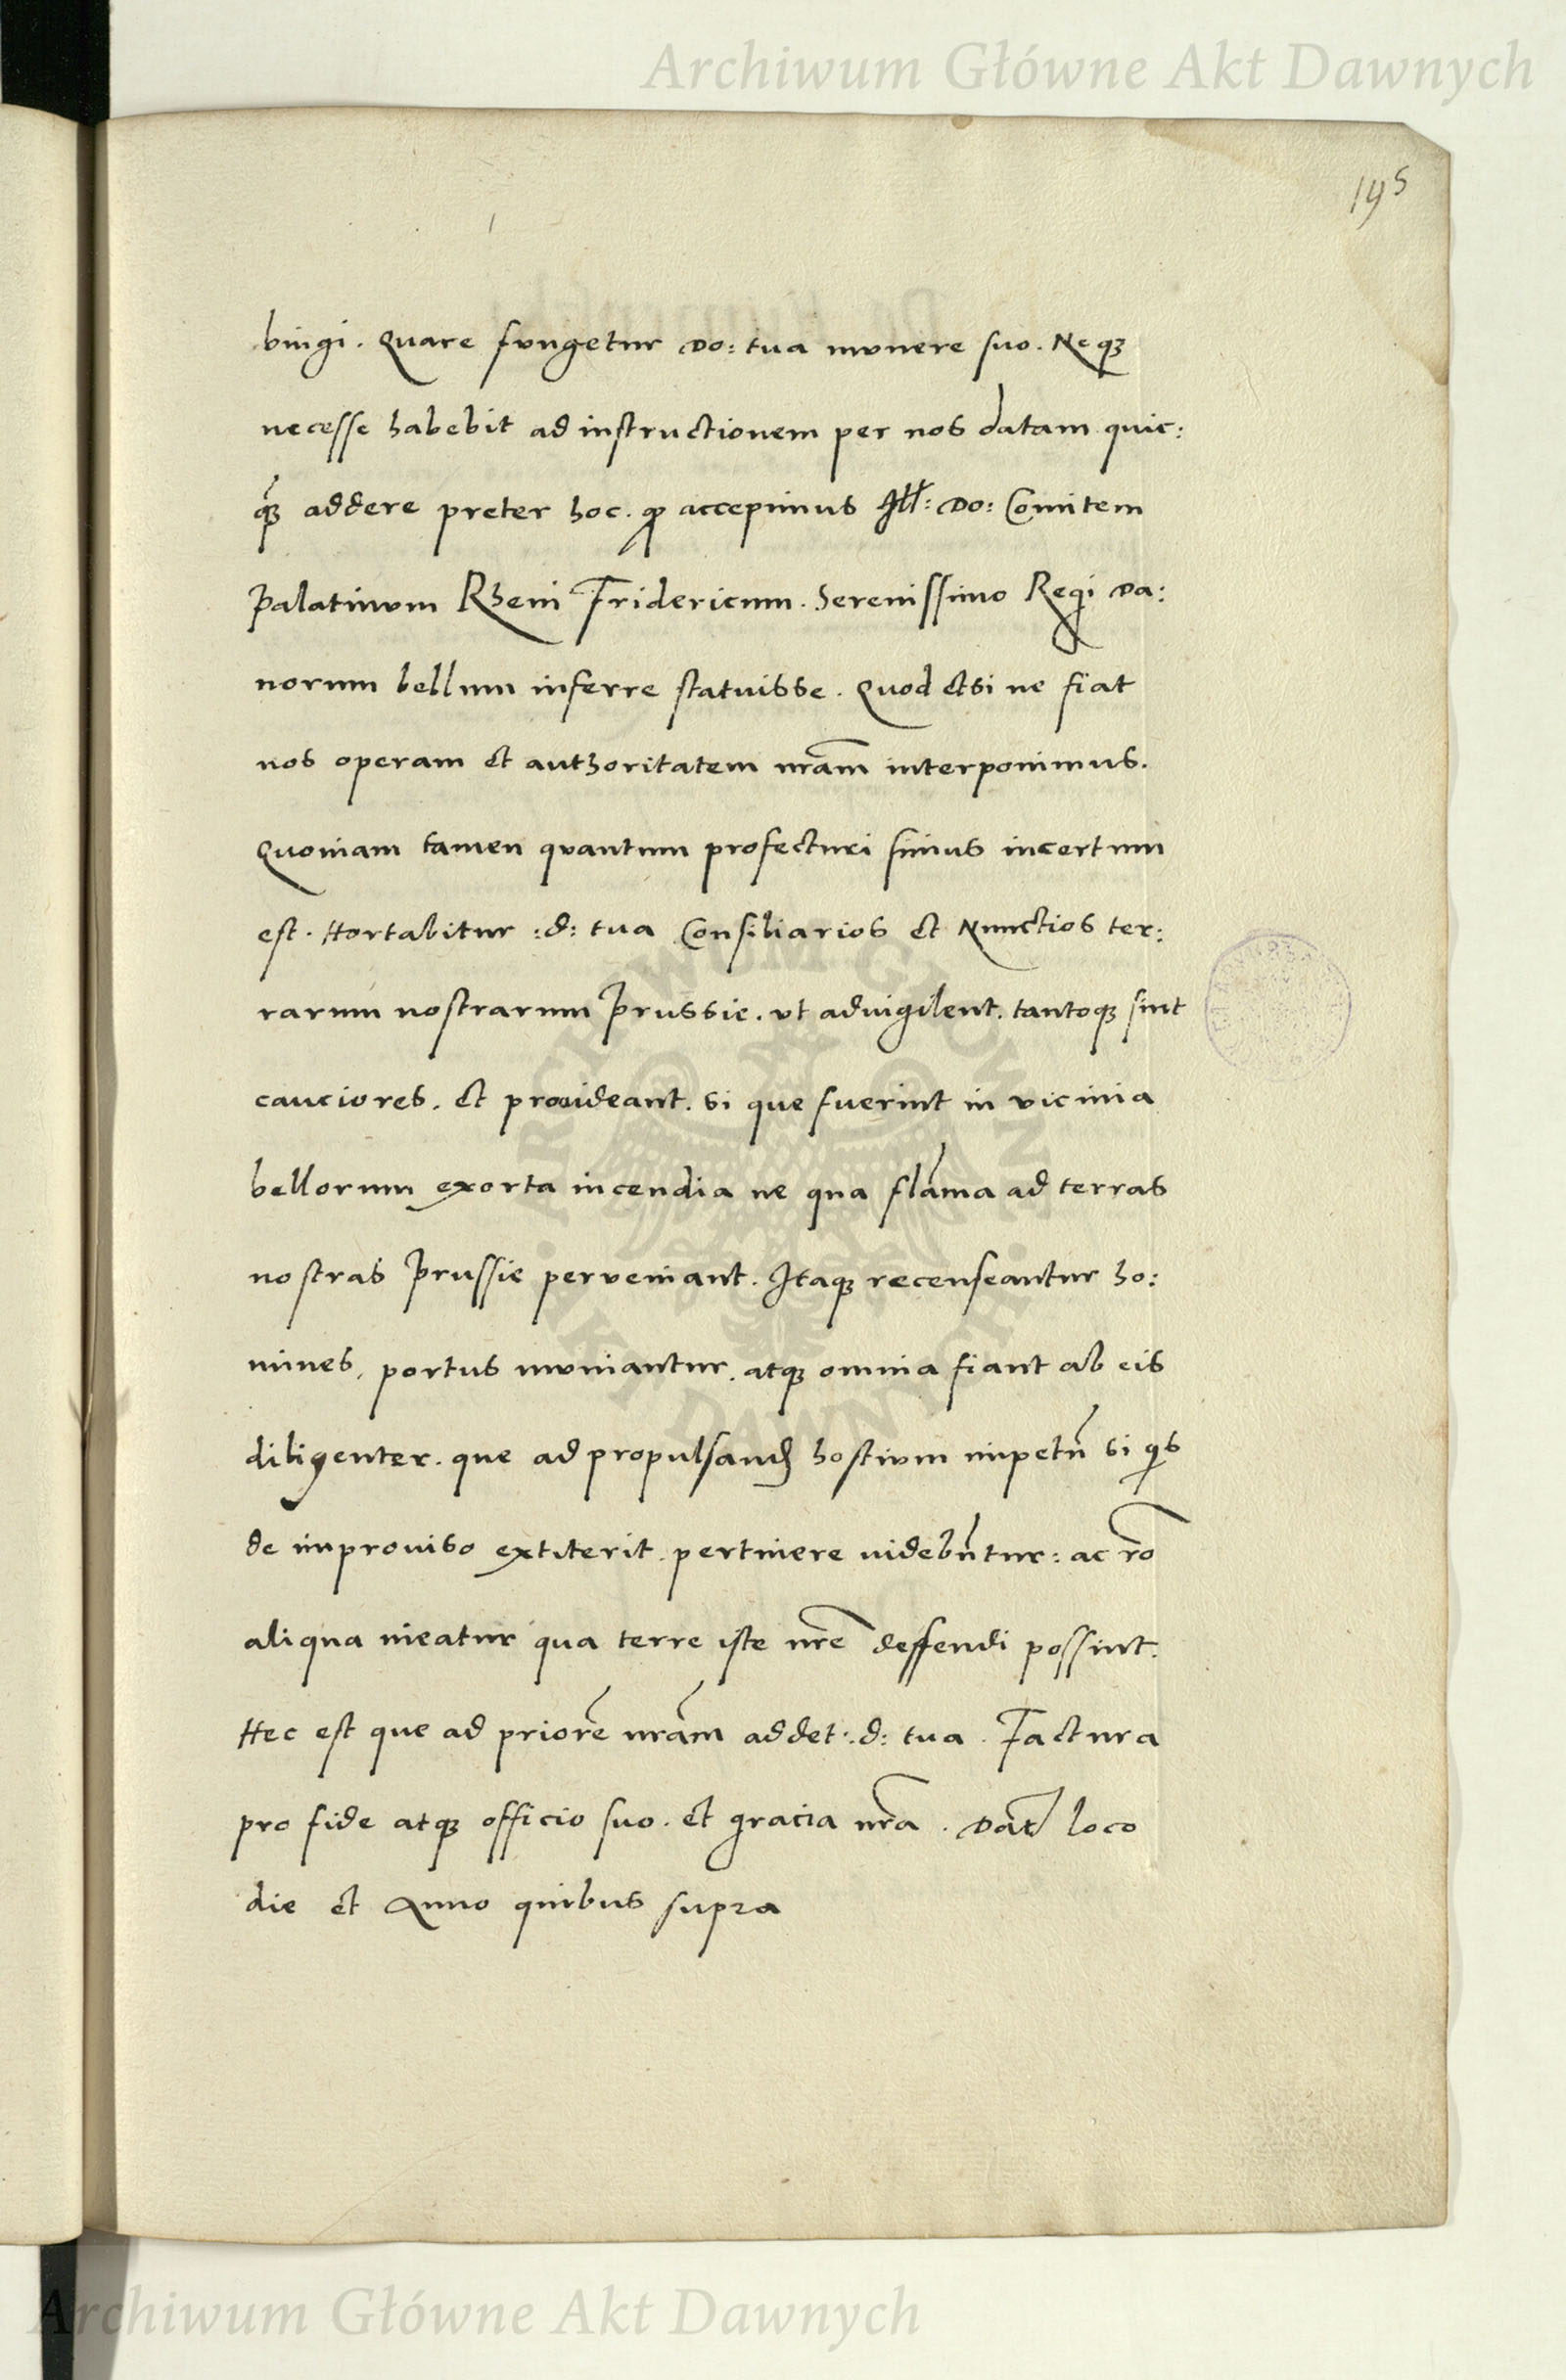 Archiwum Główne Akt Dawnych
195
bingi. Quare fungetur Do: tua munere suo. Neqꝫ
necesse habebit ad instructionem per nos datam quic:
qꝫ addere preter hoc. ꝙ accepimus Ill: Do: Comitem
Palatinum Rheni Fridericum. Serenissimo Regi Da:
norum bellum inferre statuisse. Quod etsi ne fiat
nos operam et authoritatem nr̄am interponimus.
Quoniam tamen quantum profecturi simus incertum
est. Hortabitur :d: tua Consiliarios et Nunctios ter:
rarum nostrarum Prussie. ut advigilent. tantoqꝫ sint
cauciores. et provideant. si que fuerint in vicinia
bellorum exorta incendia ne qua flāma ad terras
nostras Prussie perveniant. Itaqꝫ recenseantur ho:
mines, portus muniantur. atqꝫ omnia fiant ab eis
diligenter. que ad propulsand hostium impetū si qis
de improviso extiterit. pertinere videbūtur: ac rō
aliqua nieatur qua terre iste nr̄e deffendi possint.
Hec est que ad priorē nr̄am addet :d: tua. Factura
pro fide atqꝫ officio suo. et gracia nr̄a. Dat loco
die et Anno quibus supra
ARCHIWUM GŁÓWNE
AKT DAWNYCH
Archiwum Główne Akt Dawnych